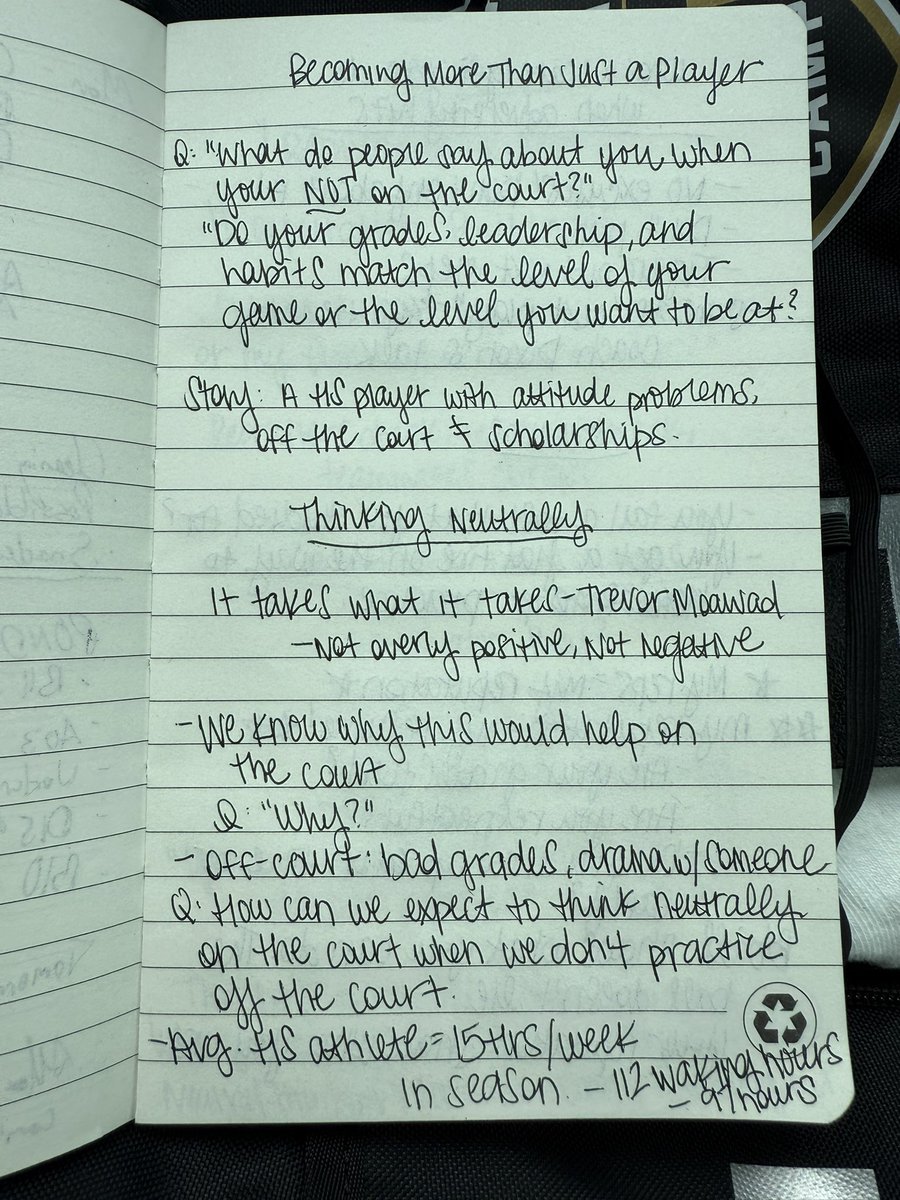 Becoming More Than Just a Player
Q: "What do people say about you when
your NOT on the court?"
"Do your grades, leadership, and
habits match the level of your
game or the level you want to be at?
Story: A HS player with attitude problems,
off the court ≠ scholarships.
Thinking Neutrally
It takes what it takes - Trevor Moawad
- Not overly positive, Not negative
- We know why this would help on
the court
Q: "Why?"
- Off-court: bad grades, drama w/ someone
Q: How can we expect to think neutrally
on the court when we don't practice
off the court.
- Avg. HS athlete = 15 Hrs/week
in season. - 112 waking hours
- 97 hours
CAMP